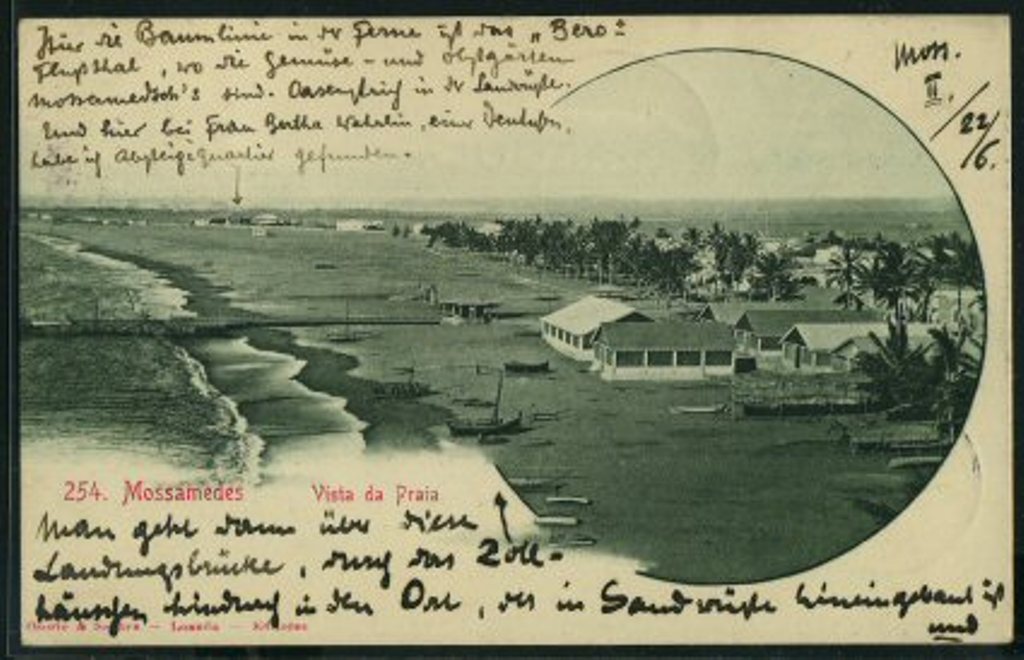 Hier die Baumlinie in der Ferne ist das „Bero=
Flußthal, wo die Gemüse- und Obstgärten
Mossamedes's sind. Oasengleich in der Sandwüste.
Und hier bei Frau Bertha, eine Deutsche,
habe ich Absteigequartier gefunden.
Moss.
II.
22/6.
254. Mossamedes Vista da Praia
Man geht dann über diese
Landungsbrücke, durch das Zoll-
häuschen hindurch in den Ort, der in Sandwüste hineingebaut ist
und
Osorio & — Loanda —